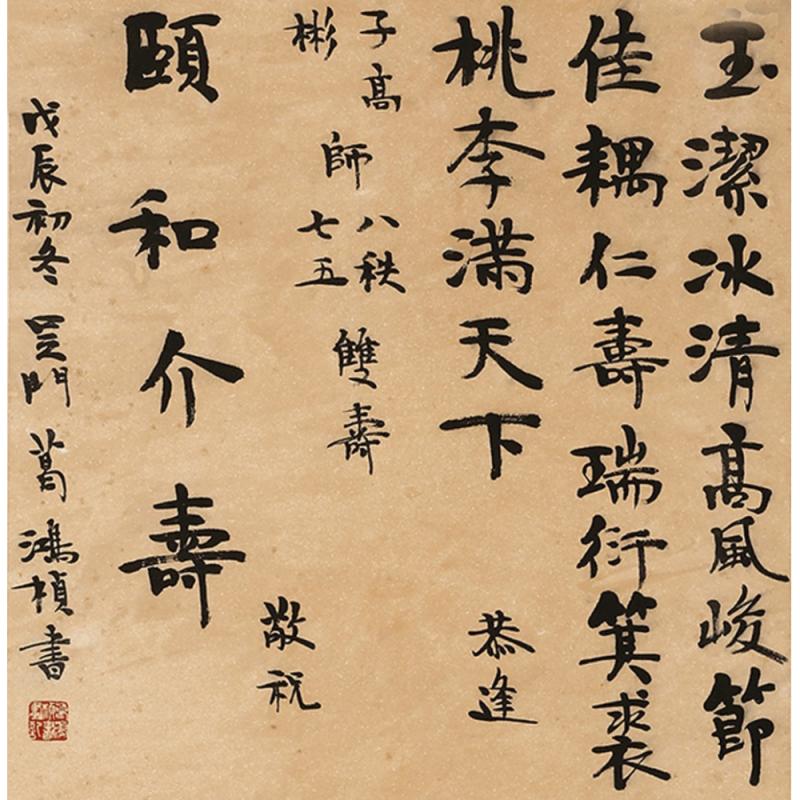 玉潔冰清高風峻節
佳耦仁壽瑞衍箕裘
桃李滿天下 恭逢
子高 八秩
彬 師 七五 雙壽
敬祝
頤和介壽
戊辰初冬 吴門 葛鴻楨書